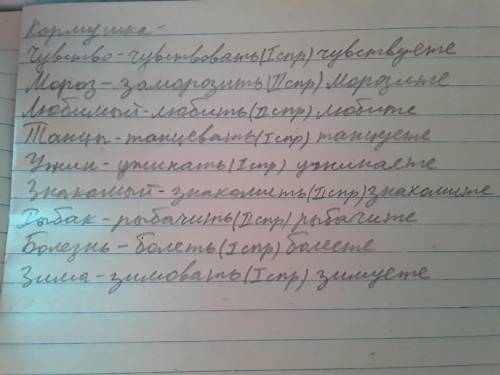 Кормушка -
Чувство - чувствовать (I спр) чувствуете
Мороз - заморозить (II спр) Морозите
Любимый - любить (II спр) любите
Танцы - танцевать (I спр) танцуете
Ужин - ужинать (I спр) ужинаете
Знакомый - знакомить (II спр) знакомите
Рыбак - рыбачить (II спр) рыбачите
Болезнь - болеть (I спр) болеете
Зима - зимовать (I спр) зимуете